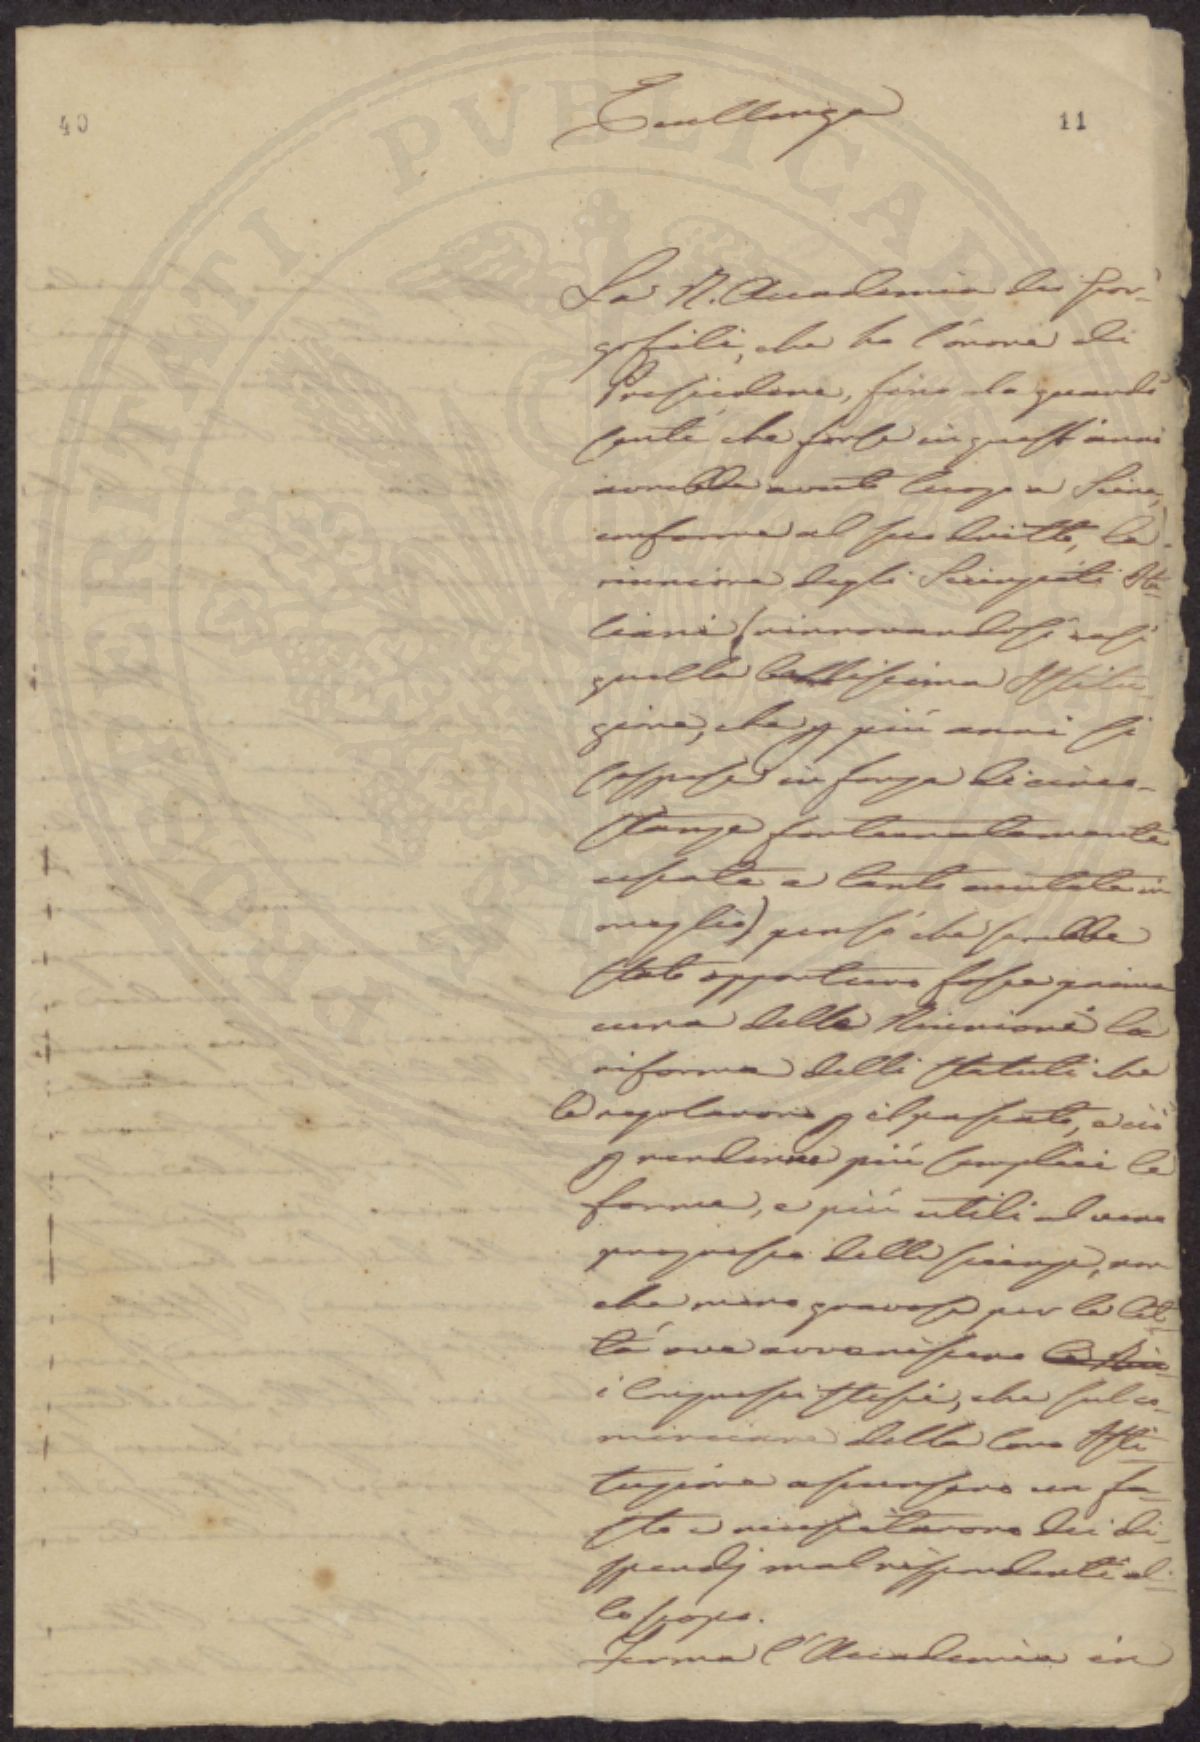 40
11
Eccellenza
La R. Accademia dei Geor-
gofili, che ho l'onore di
Presiedere, fino da quando
sentì che forse in quest'anno
avrebbe avuto luogo a Siena,
conforme al suo dritto, la
riunione degli Scienziati Ita-
liani (rinnovandosi così
quella bellissima Istitu-
zione, che p più anni si
sospese in forza di circo-
stanze fortunatamente
cessate e tanto mutate in
meglio) pensò che sarebbe
stato opportuno fosse prima
cura della Riunione la
riforma delli statuti che
la regolarono p il passato, e ciò
p renderne più semplici le
forme, e più utili al vero
progresso delle scienze, non
che meno gravose per le Cit-
tà ove avvenissero le Riu-
i Congressi stessi, che sul co-
minciare della loro Isti-
tuzione assunsero un fa-
sto e necessitarono dei di-
spendj mal rispondenti al-
lo scopo.
Ferma l'Accademia in